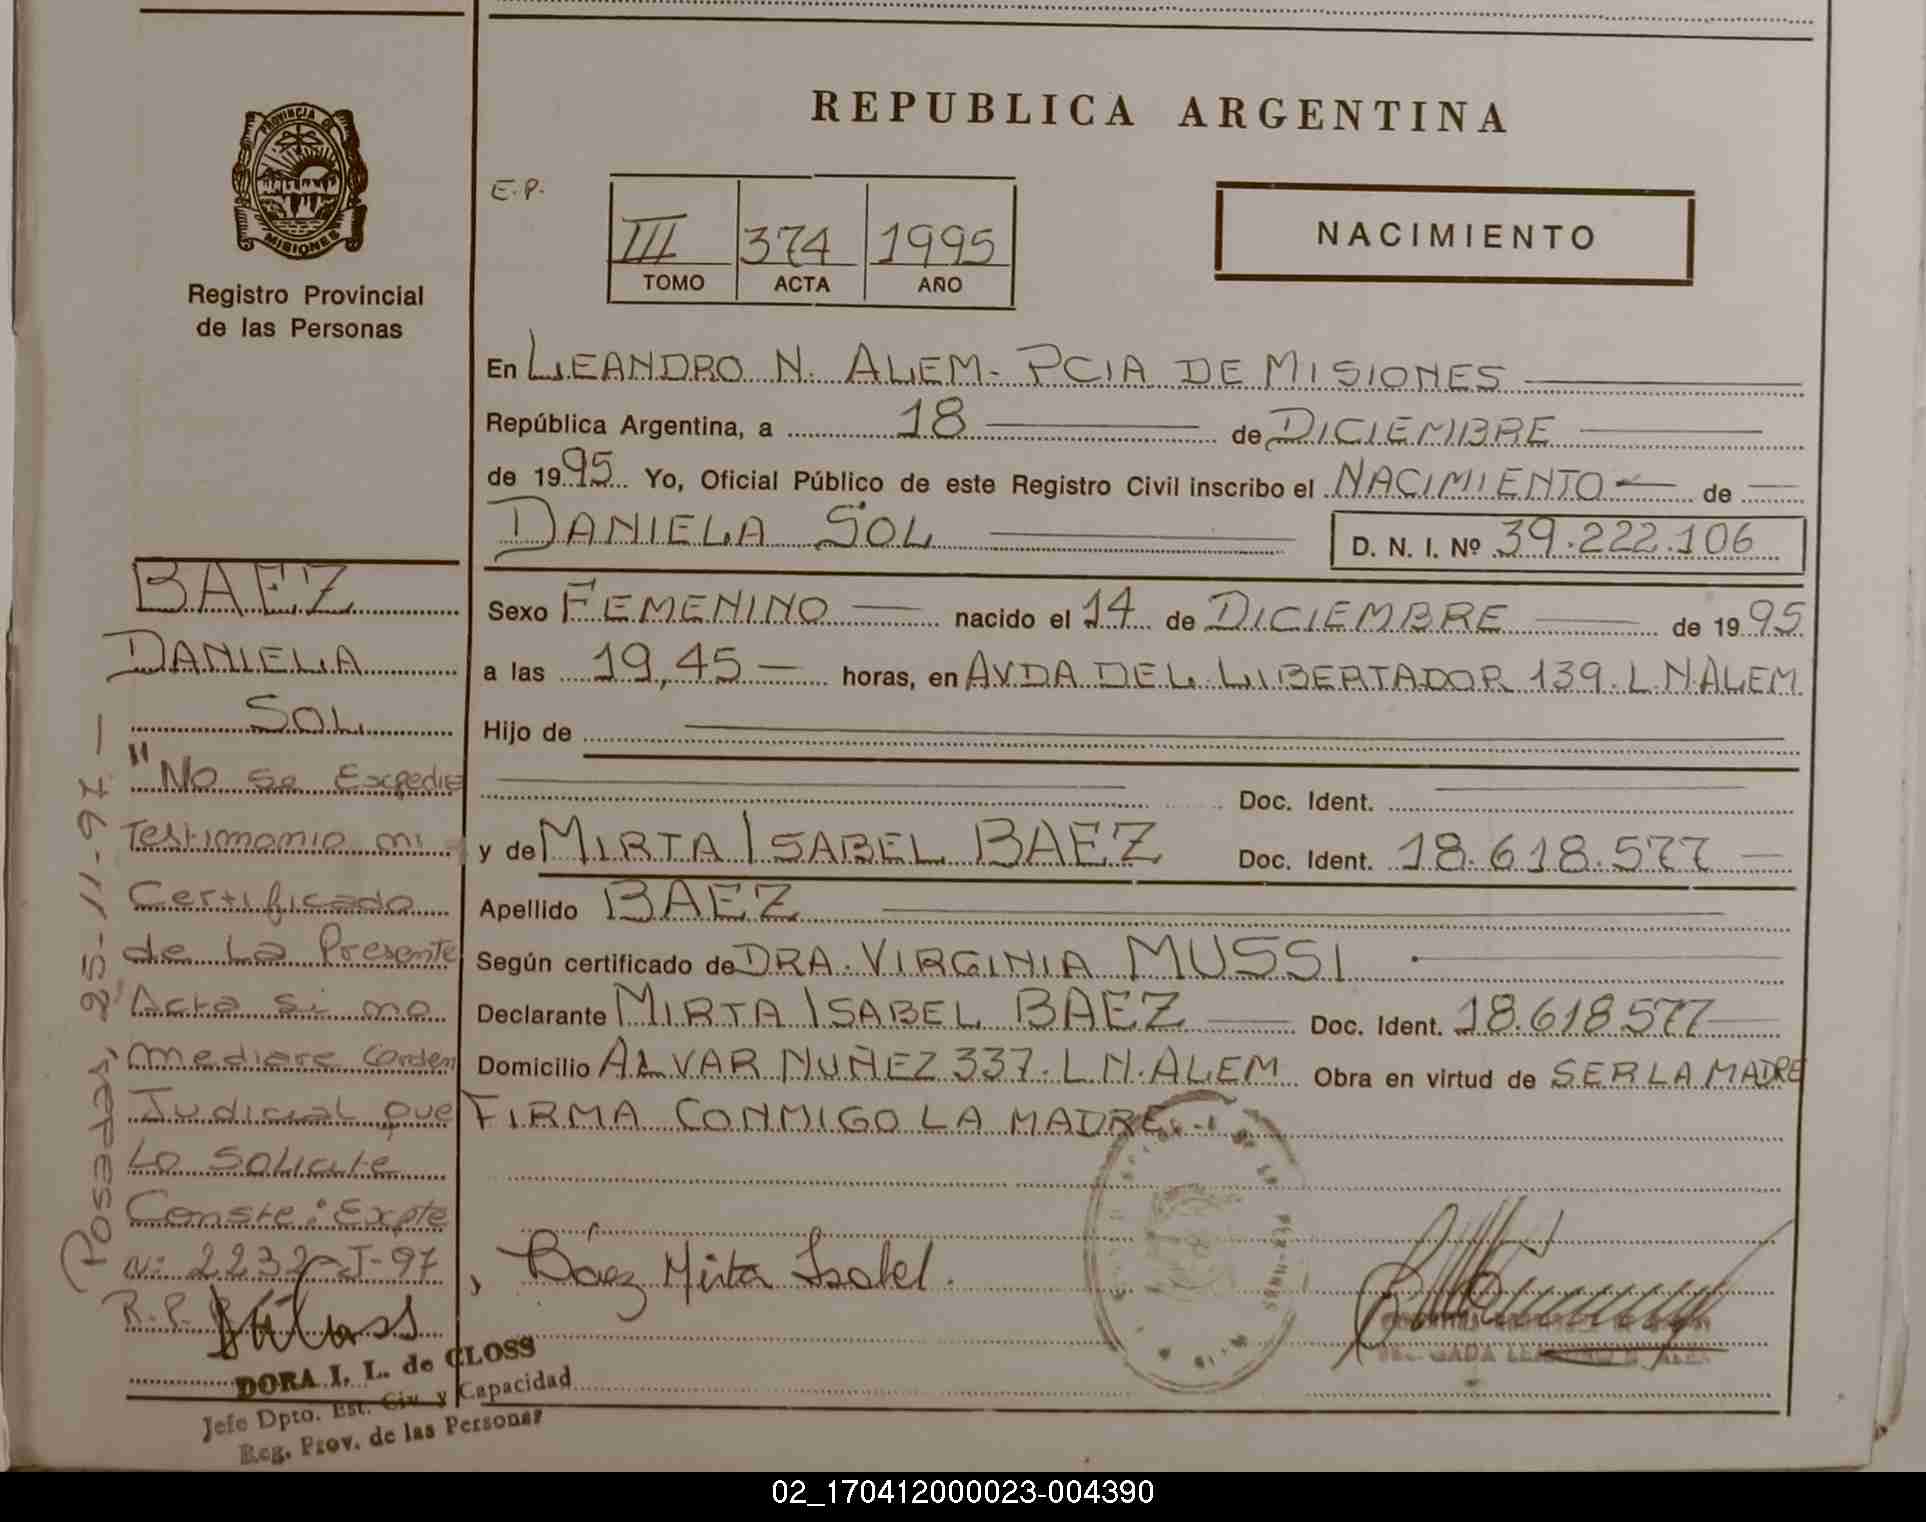 PROVINCIA DE
MISIONES
Registro Provincial
de las Personas
BAEZ
DANIELA
SOL
"No se Expedira
Testimonio ni
Certificado
de La Presente
Acta si no
mediare Orden
Judicial que
Lo solicite
Conste: Expte
N: 2232-J-97
R.P.P.
Posadas, 25-11-97-
DORA I. L. de CLOSS
Jefe Dpto. Est. Civ. y Capacidad
Reg. Prov. de las Personas
REPUBLICA ARGENTINA
E.P.
III 374 1995
TOMO ACTA AÑO
NACIMIENTO
En LEANDRO N. ALEM- PCIA DE MISIONES
República Argentina, a 18 de DICIEMBRE
de 1995 Yo, Oficial Público de este Registro Civil inscribo el NACIMIENTO de
DANIELA SOL D. N. I. Nº 39.222.106
Sexo FEMENINO nacido el 14 de DICIEMBRE de 1995
a las 19,45 horas, en AVDA DEL LIBERTADOR 139. L.N.ALEM
Hijo de
Doc. Ident.
y de MIRTA ISABEL BAEZ Doc. Ident. 18.618.577
Apellido BAEZ
Según certificado de DRA. VIRGINIA MUSSI
Declarante MIRTA ISABEL BAEZ Doc. Ident. 18.618577
Domicilio ALVAR NUÑEZ 337. L.N.ALEM Obra en virtud de SER LA MADRE
FIRMA CONMIGO LA MADRE.-
Báez Mirta Isabel.
02_170412000023-004390